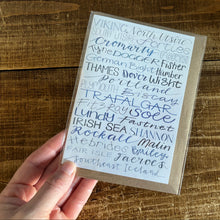 VIKING North Utsire
South Utsire Forties
Cromarty Forth
Tyne DOGGER Fisher
German Bight Humber
THAMES Dover Wight
Portland
Biscay
TRAFALGAR
FitzRoy Sole
Lundy Fastnet
IRISH SEA SHANNON
Rockall Malin
Hebrides Bailey
FAIR ISLE Faeroes
Southeast Iceland